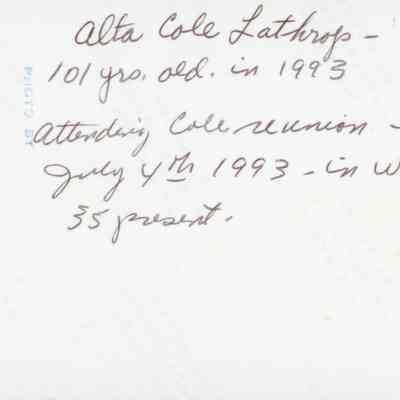 Alta Cole Lathrop -
101 yrs. old. in 1993
Attending Cole reunion -
July 4th 1993 - in W
35 present.
PHOTO BY